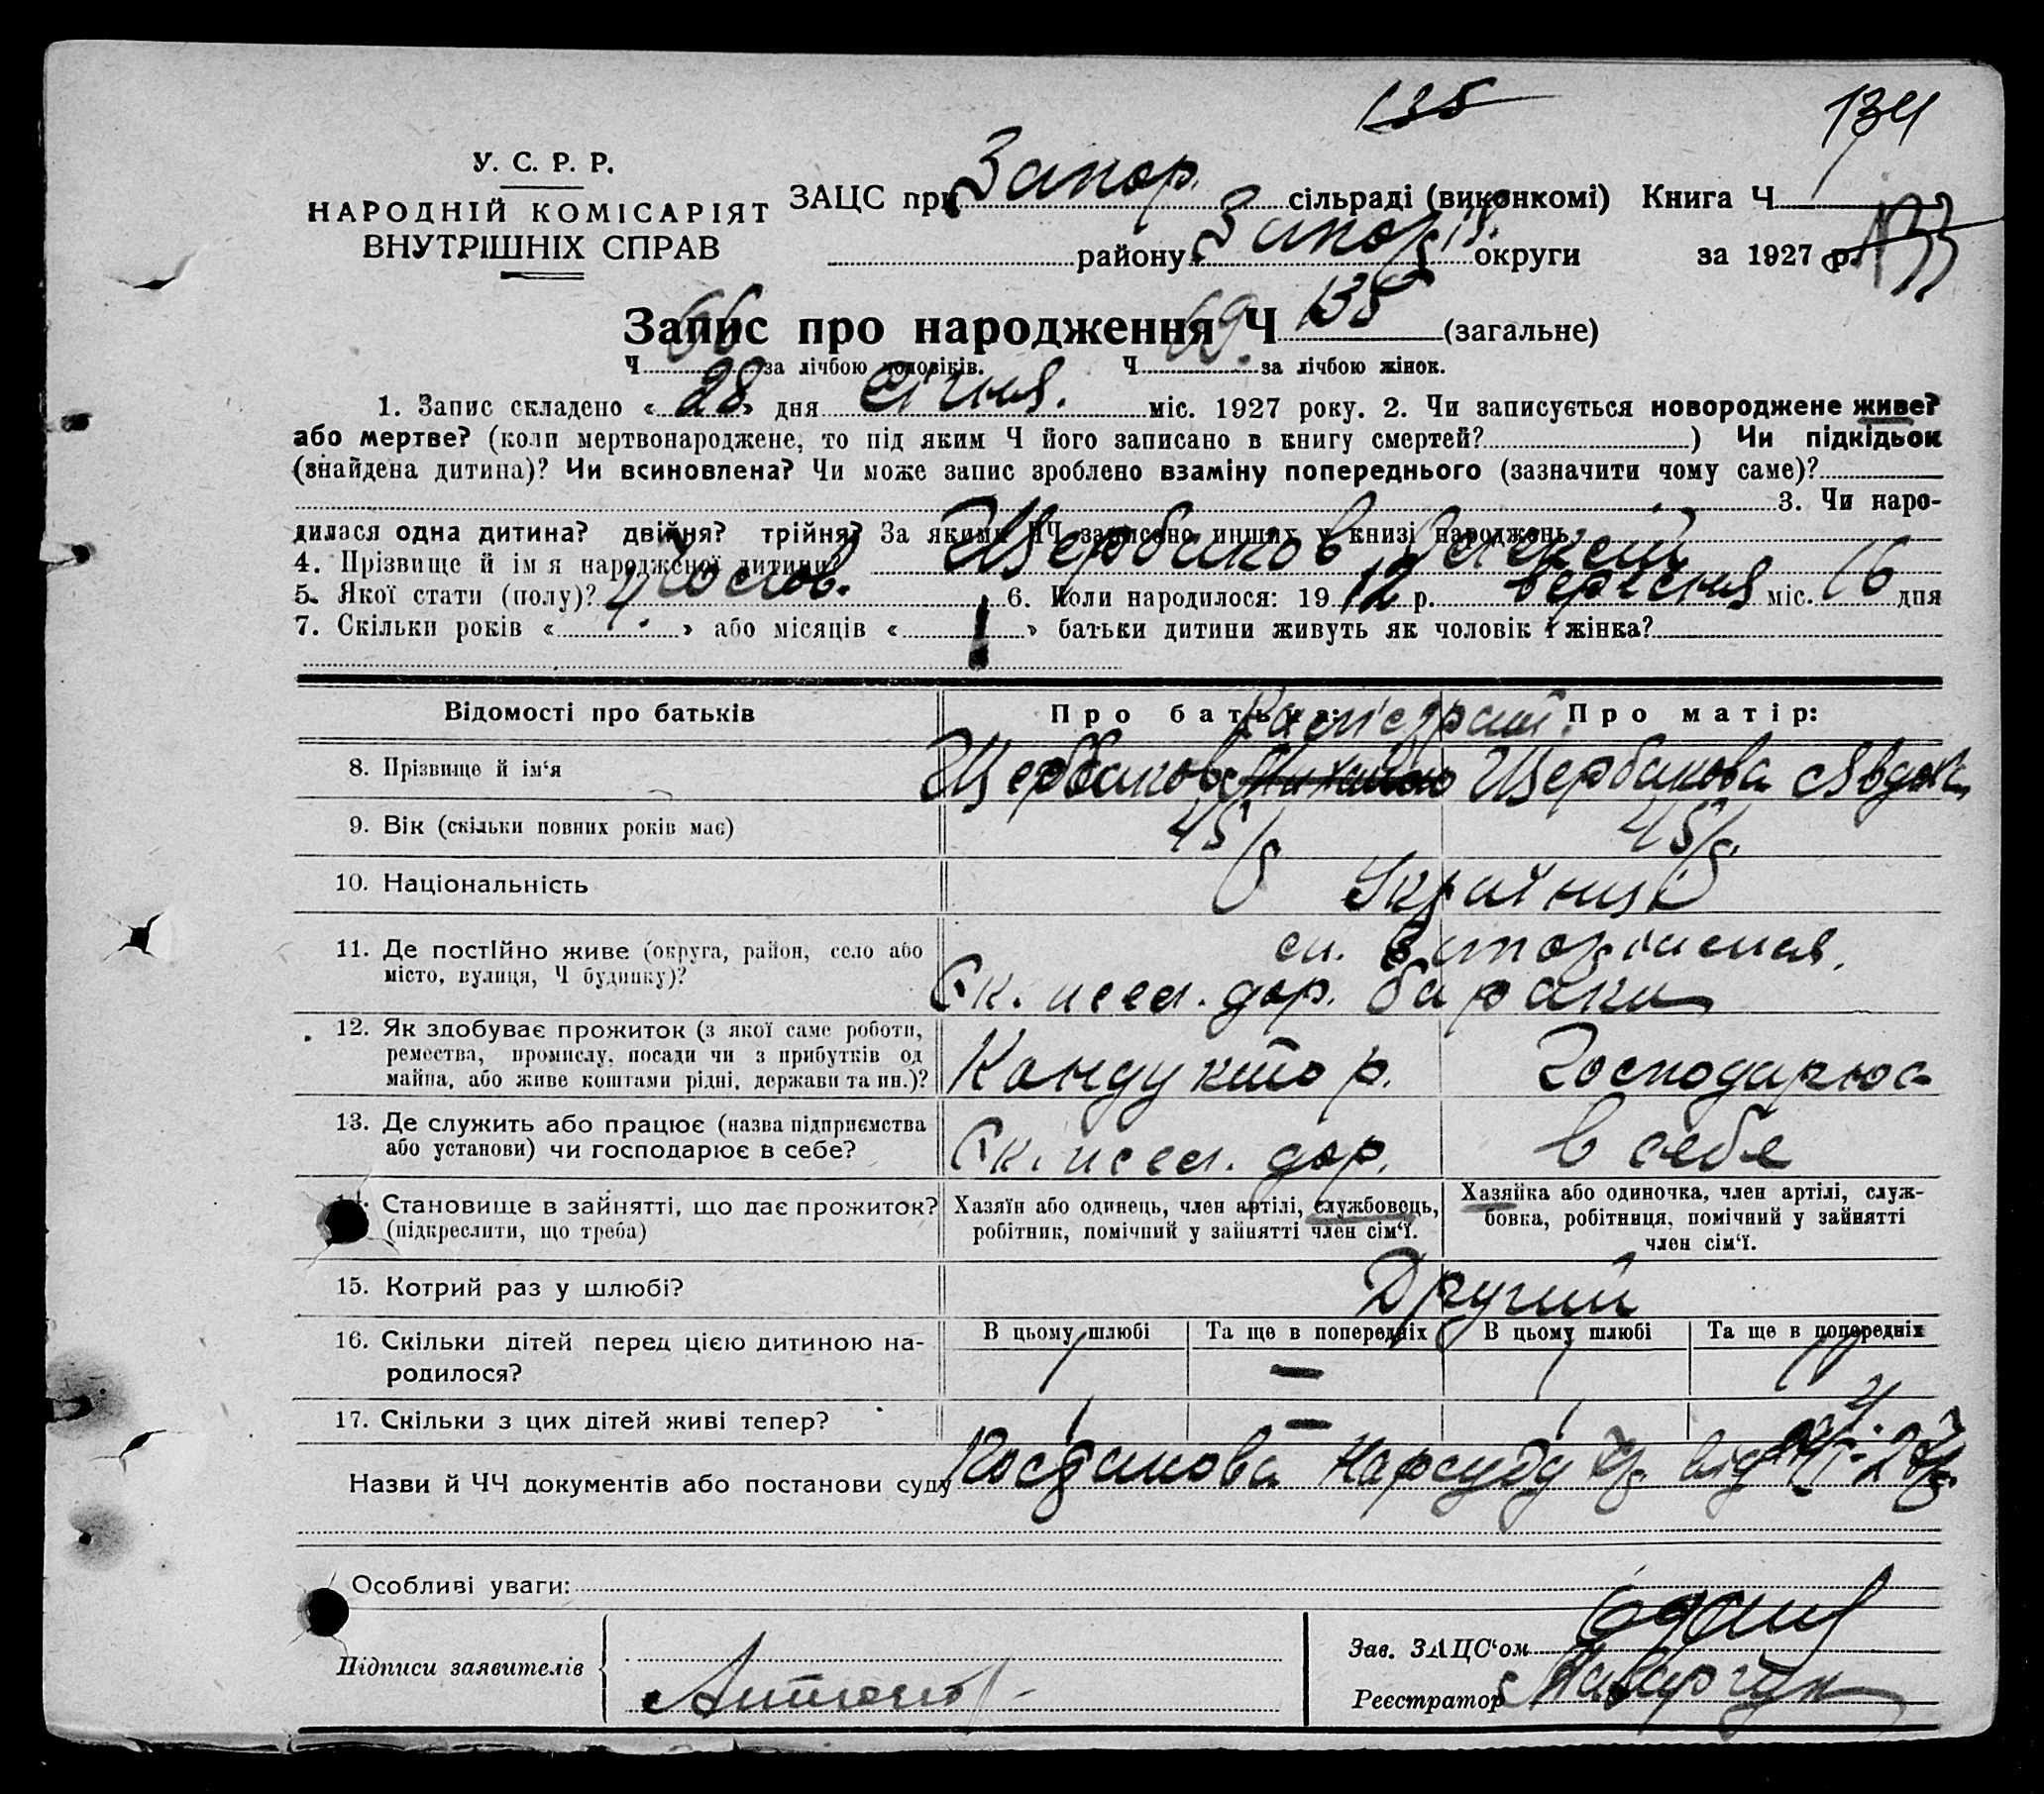 135
134
У. С. Р. Р.
НАРОДНІЙ КОМІСАРІЯТ
ВНУТРІШНІХ СПРАВ
ЗАЦС при Запор. сільраді (виконкомі) Книга Ч
району Запоріз. округи за 1927 р. 133
Запис про народження Ч 135 (загальне)
Ч 66 за лічбою чоловіків. Ч 69. за лічбою жінок.
1. Запис складено « 28 » дня січня. міс. 1927 року. 2. Чи записується новороджене живе?
або мертве? (коли мертвонароджене, то під яким Ч його записано в книгу смертей? ) Чи підкідьок
(знайдена дитина)? Чи всиновлена? Чи може запис зроблено взаміну попереднього (зазначити чому саме)?
3. Чи наро-
дилася одна дитина? двійня? трійня? За якими ЧЧ записано инших у книзі народжень
4. Прізвище й ім'я народженої дитини? Щербаков Олексій
5. Якої стати (полу)? Чолов. 6. Коли народилося: 19 12 р. вересня міс. 16 дня
7. Скільки років « » або місяців « » батьки дитини живуть як чоловік і жінка?
Відомості про батьків Про батька: Про матір:
8. Прізвище й ім'я Щербаков Щербакова Явдок.
9. Вік (скільки повних років має) 45 45
10. Національність Українці
11. Де постійно живе (округа, район, село або
місто, вулиця, Ч будинку)?
дор. бараки
12. Як здобуває прожиток (з якої саме роботи,
ремества, промислу, посади чи з прибутків од
майна, або живе коштами рідні, держави та ин.)? Кондуктор. Господарює
13. Де служить або працює (назва підприємства
або установи) чи господарює в себе? дор. в себе
14. Становище в зайнятті, що дає прожиток?
(підкреслити, що треба)
Хазяїн або одинець, член артілі, службовець,
робітник, помічний у зайнятті член сім'ї.
Хазяйка або одиночка, член артілі, служ-
бовка, робітниця, помічний у зайнятті
член сім'ї.
15. Котрий раз у шлюбі? Другий
16. Скільки дітей перед цією дитиною на-
родилося?
В цьому шлюбі Та ще в попередніх В цьому шлюбі Та ще в попередніх
1 — 1
17. Скільки з цих дітей живі тепер? 1 — 1
Назви й ЧЧ документів або постанови суду Постанова Нарсуду від
Особливі уваги:
Підписи заявителів
Зав. ЗАЦС'ом
Реєстратор